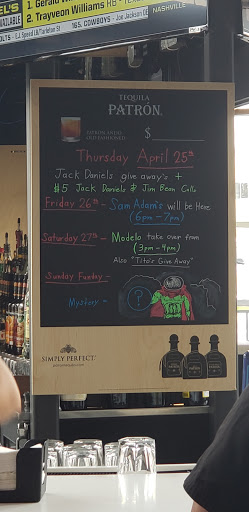 1. Gerald W
2. Trayveon Williams HB - TEXAS
165. COWBOYS - Jon Jackson DE
NASHVILLE
TEQUILA
PATRÓN
$
Thursday April 25th
Jack Daniels give away's +
$5 Jack Daniels & Jim Bean Coffe
Friday 26th - Sam Adam's will be Here
(6pm - 7pm)
Saturday 27th - Modelo take over from
(3pm - 4pm)
Also "Tito's Give Away"
Sunday Funday -
Mystery -
?
SIMPLY PERFECT